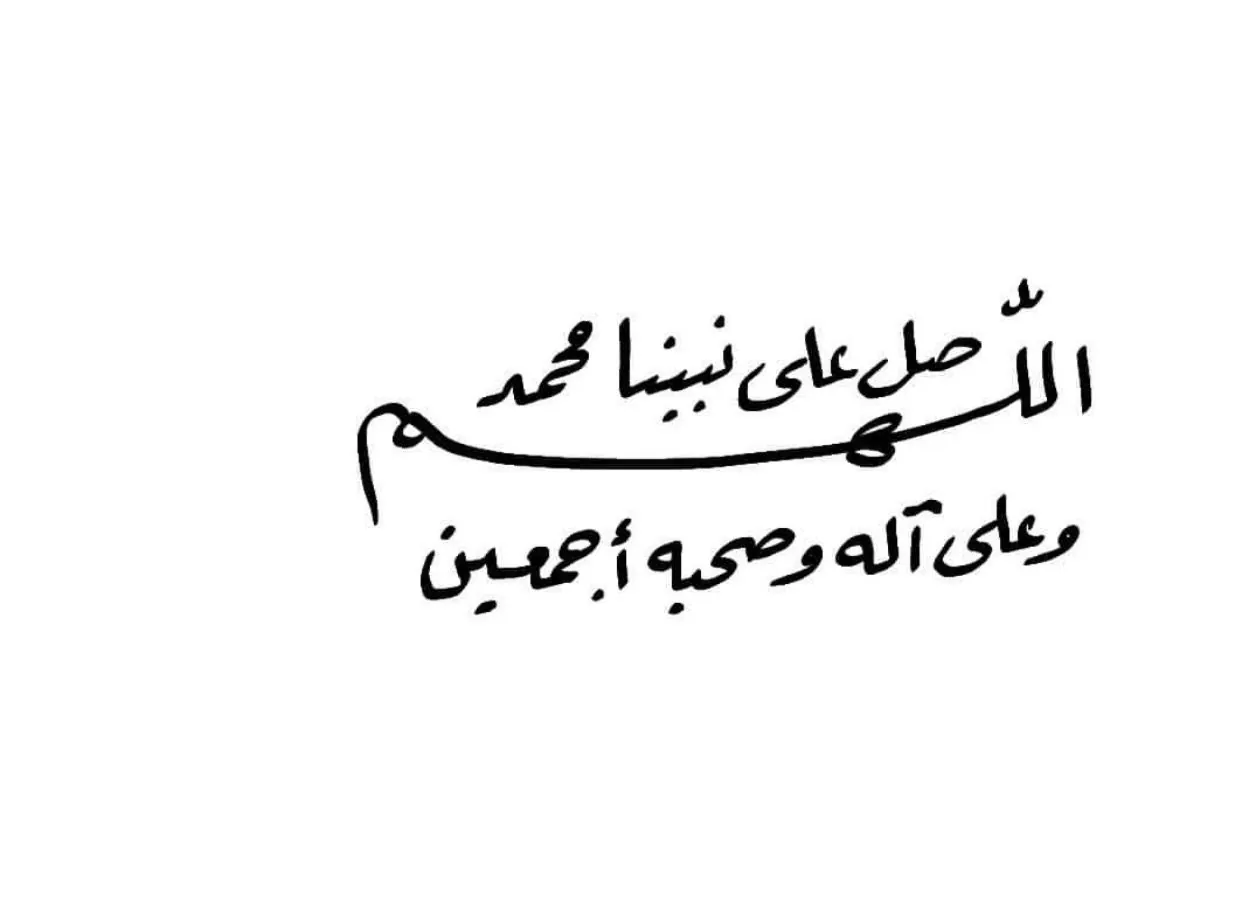 اللّهم صل على نبينا محمد
وعلى آله وصحبه أجمعين